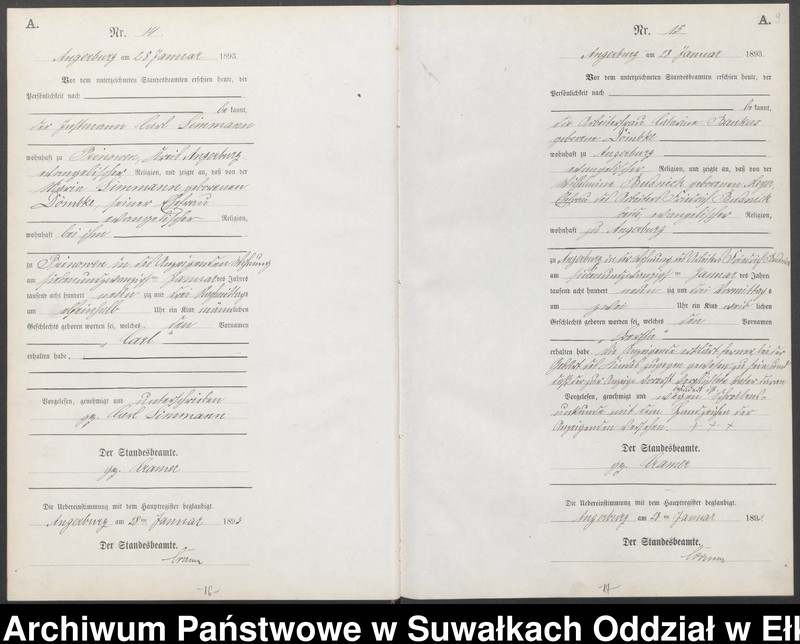 A.
Nr. 14.
Angerburg am 28 Januar 1893.
Vor dem unterzeichneten Standesbeamten erschien heute, der
Persönlichkeit nach
be kannt,
der Carl Simmann
wohnhaft zu Angerburg
evangelischer Religion, und zeigte an, daß von der
Simmann geborenen
Dömbke, seiner Ehefrau
evangelischer Religion,
wohnhaft bei ihm
zu in des Anzeigenden Wohnung
am siebenundzwanzigsten Januar des Jahres
tausend acht hundert neun zig und drei
um Uhr ein Kind männlichen
Geschlechts geboren worden sei, welches den Vornamen
„Carl“
erhalten habe.
Vorgelesen, genehmigt und unterschrieben
gz. Carl Simmann
Der Standesbeamte.
gz. Cramer
Die Uebereinstimmung mit dem Hauptregister beglaubigt.
Angerburg am 28ten Januar 1893
Der Standesbeamte.
Cramer
-16-
A. 9
Nr. 15
Angerburg am 28 Januar 1893.
Vor dem unterzeichneten Standesbeamten erschien heute, der
Persönlichkeit nach
be kannt,
die Arbeiterfrau
geborene Dömbke
wohnhaft zu Angerburg
evangelischer Religion, und zeigte an, daß von der
Wilhelmine geborenen
Ehefrau des Arbeiters Friedrich
beide evangelischer Religion,
wohnhaft zu Angerburg
zu Angerburg in der Wohnung des Arbeiters Friedrich
am siebenundzwanzigsten Januar des Jahres
tausend acht hundert neun zig und drei Vormittags
um zwei Uhr ein Kind weib lichen
Geschlechts geboren worden sei, welches den Vornamen
erhalten habe. Die Anzeigende erklärt ferner, bei der
Geburt des Kindes zugegen gewesen zu sein und
daß der zur Anzeige
Vorgelesen, genehmigt und wegen Schreibens-
unkunde mit dem Handzeichen der
Anzeigenden versehen. + + +
Der Standesbeamte.
gz. Cramer
Die Uebereinstimmung mit dem Hauptregister beglaubigt.
Angerburg am 28ten Januar 1893
Der Standesbeamte.
Cramer
-17-
Archiwum Państwowe w Suwałkach Oddział w Eł